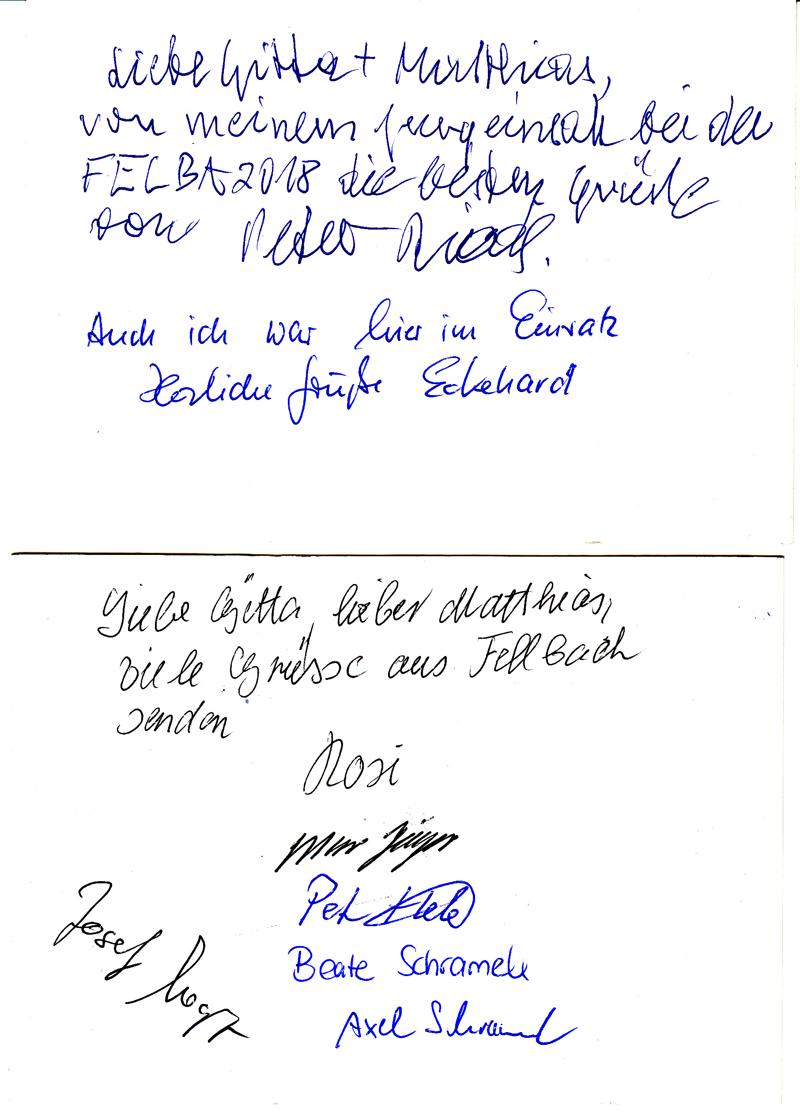 Liebe Gitta + Matthias,
von meinem bei der
FELBA 2018 die besten Grüße
von Peter
Auch ich war hier im Einsatz
Herzliche Grüße Eckehard
Liebe Gitta, lieber Matthias,
viele Grüsse aus Fellbach
senden
Rosi
Beate Schramek
Axel
Josef